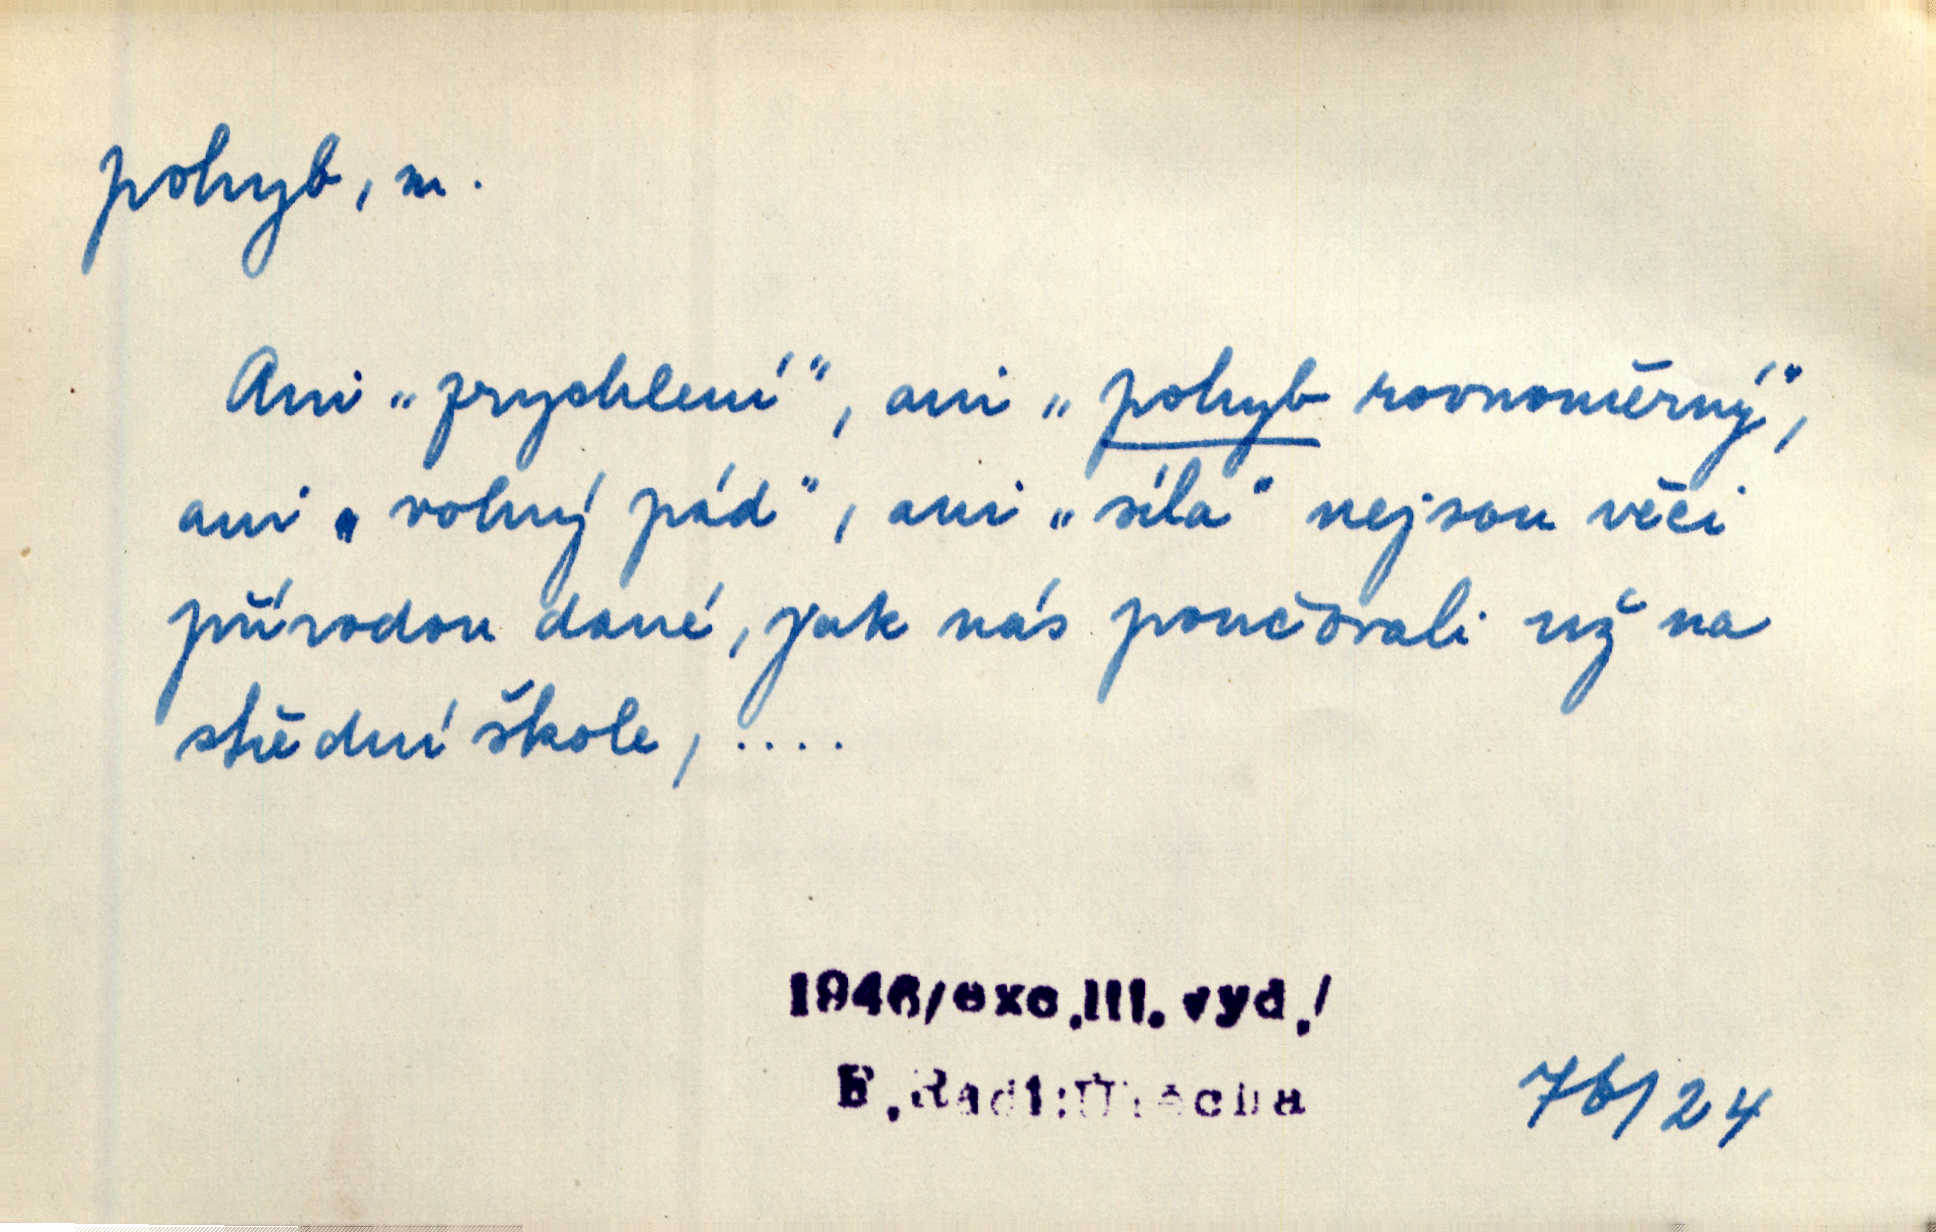 pohyb, m.
Ani „zrychlení“, ani „pohyb rovnoměrný“,
ani „volný pád“, ani „síla“ nejsou věci
přírodou dané, jak nás poučovali už na
střední škole, ....
1946/exc.III.vyd./
E.Rádl:Útěcha
76/24